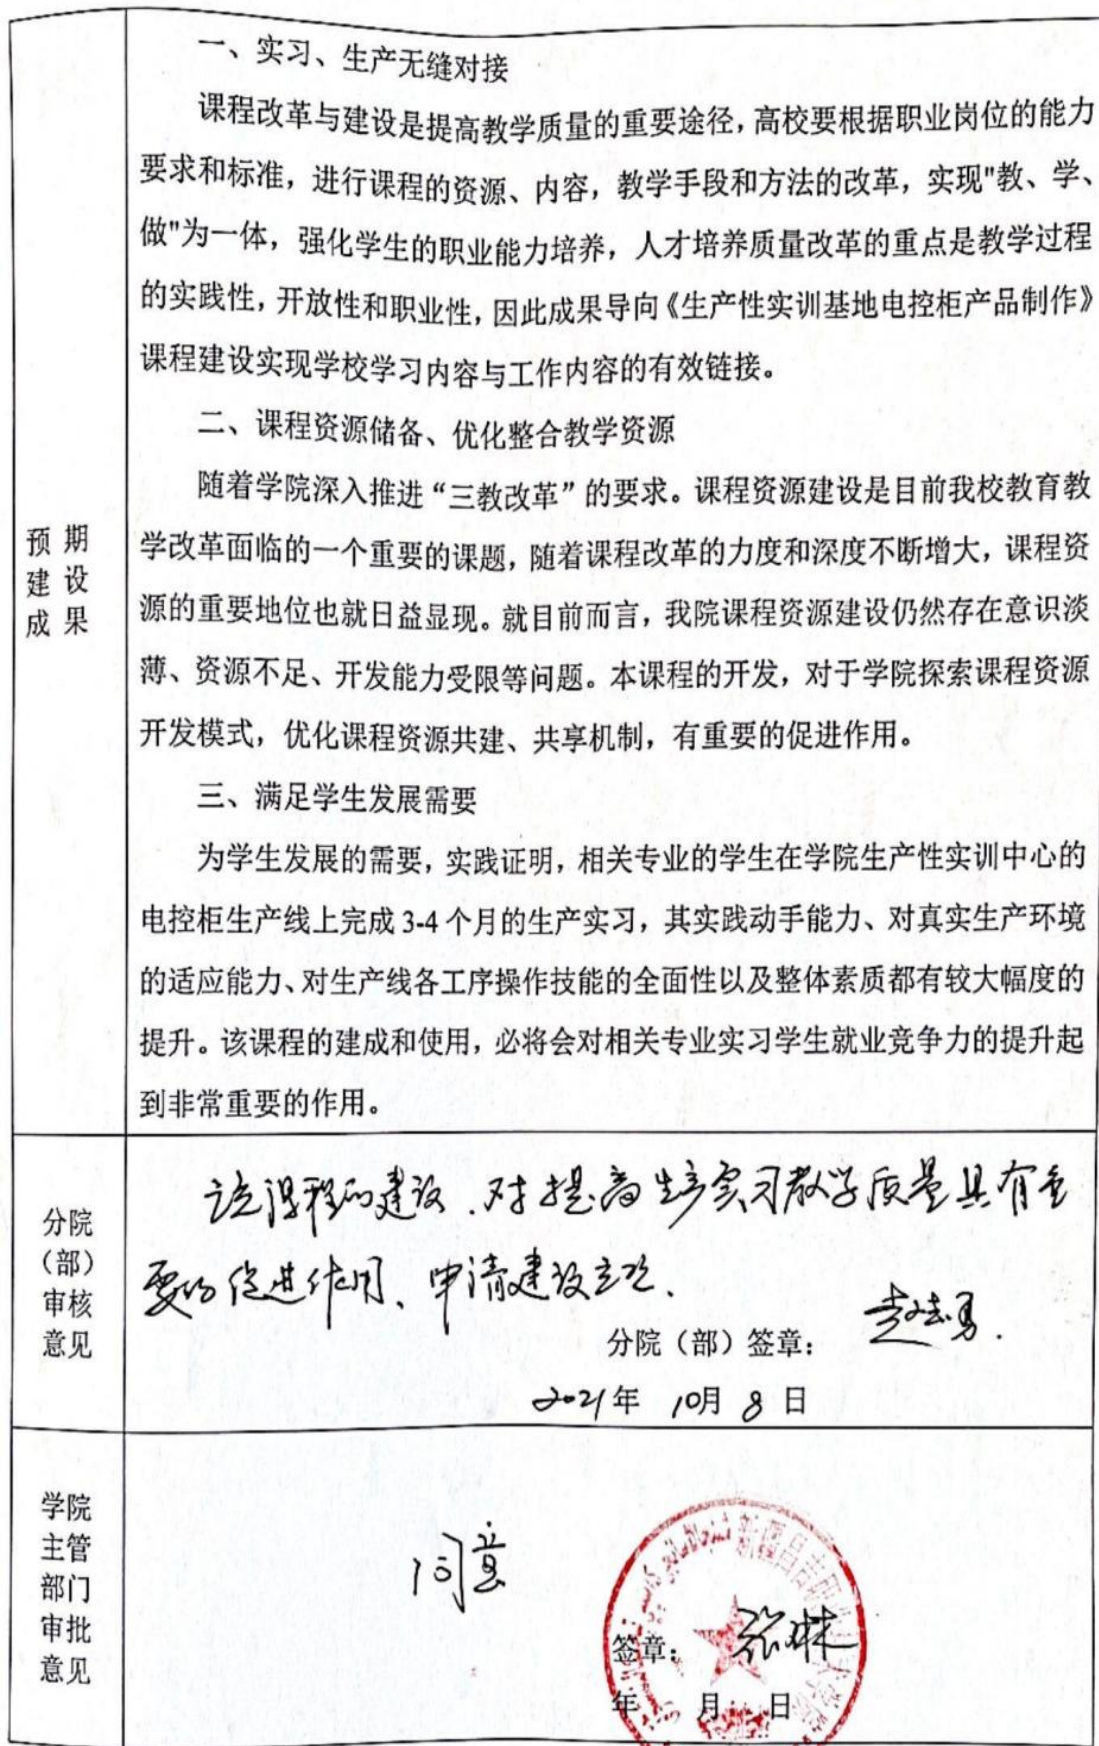 一、实习、生产无缝对接
课程改革与建设是提高教学质量的重要途径，高校要根据职业岗位的能力
要求和标准，进行课程的资源、内容，教学手段和方法的改革，实现"教、学、
做"为一体，强化学生的职业能力培养，人才培养质量改革的重点是教学过程
的实践性，开放性和职业性，因此成果导向《生产性实训基地电控柜产品制作》
课程建设实现学校学习内容与工作内容的有效链接。
二、课程资源储备、优化整合教学资源
随着学院深入推进“三教改革”的要求。课程资源建设是目前我校教育教
学改革面临的一个重要的课题，随着课程改革的力度和深度不断增大，课程资
源的重要地位也就日益显现。就目前而言，我院课程资源建设仍然存在意识淡
薄、资源不足、开发能力受限等问题。本课程的开发，对于学院探索课程资源
开发模式，优化课程资源共建、共享机制，有重要的促进作用。
三、满足学生发展需要
为学生发展的需要，实践证明，相关专业的学生在学院生产性实训中心的
电控柜生产线上完成 3-4 个月的生产实习，其实践动手能力、对真实生产环境
的适应能力、对生产线各工序操作技能的全面性以及整体素质都有较大幅度的
提升。该课程的建成和使用，必将会对相关专业实习学生就业竞争力的提升起
到非常重要的作用。
预 期
建 设
成 果
分院
（部）
审核
意见
该课程的建设，对提高生产实习教学质量具有重
要的促进作用、申请建设立项.
分院（部）签章：
2021年 10月 8 日
学院
主管
部门
审批
意见
同意
签章：
年 月 日